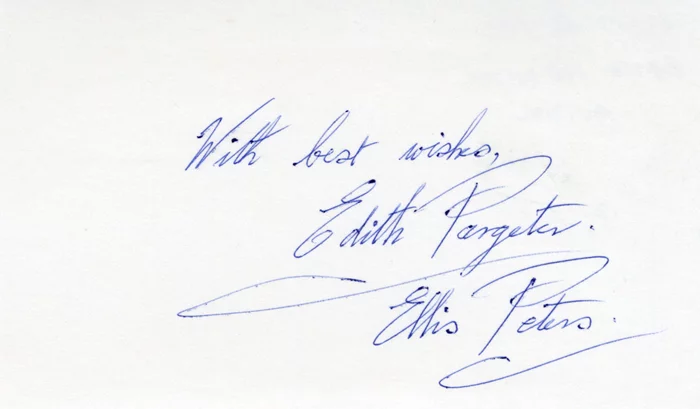 With best wishes,
Edith Pargeter.
Ellis Peters.